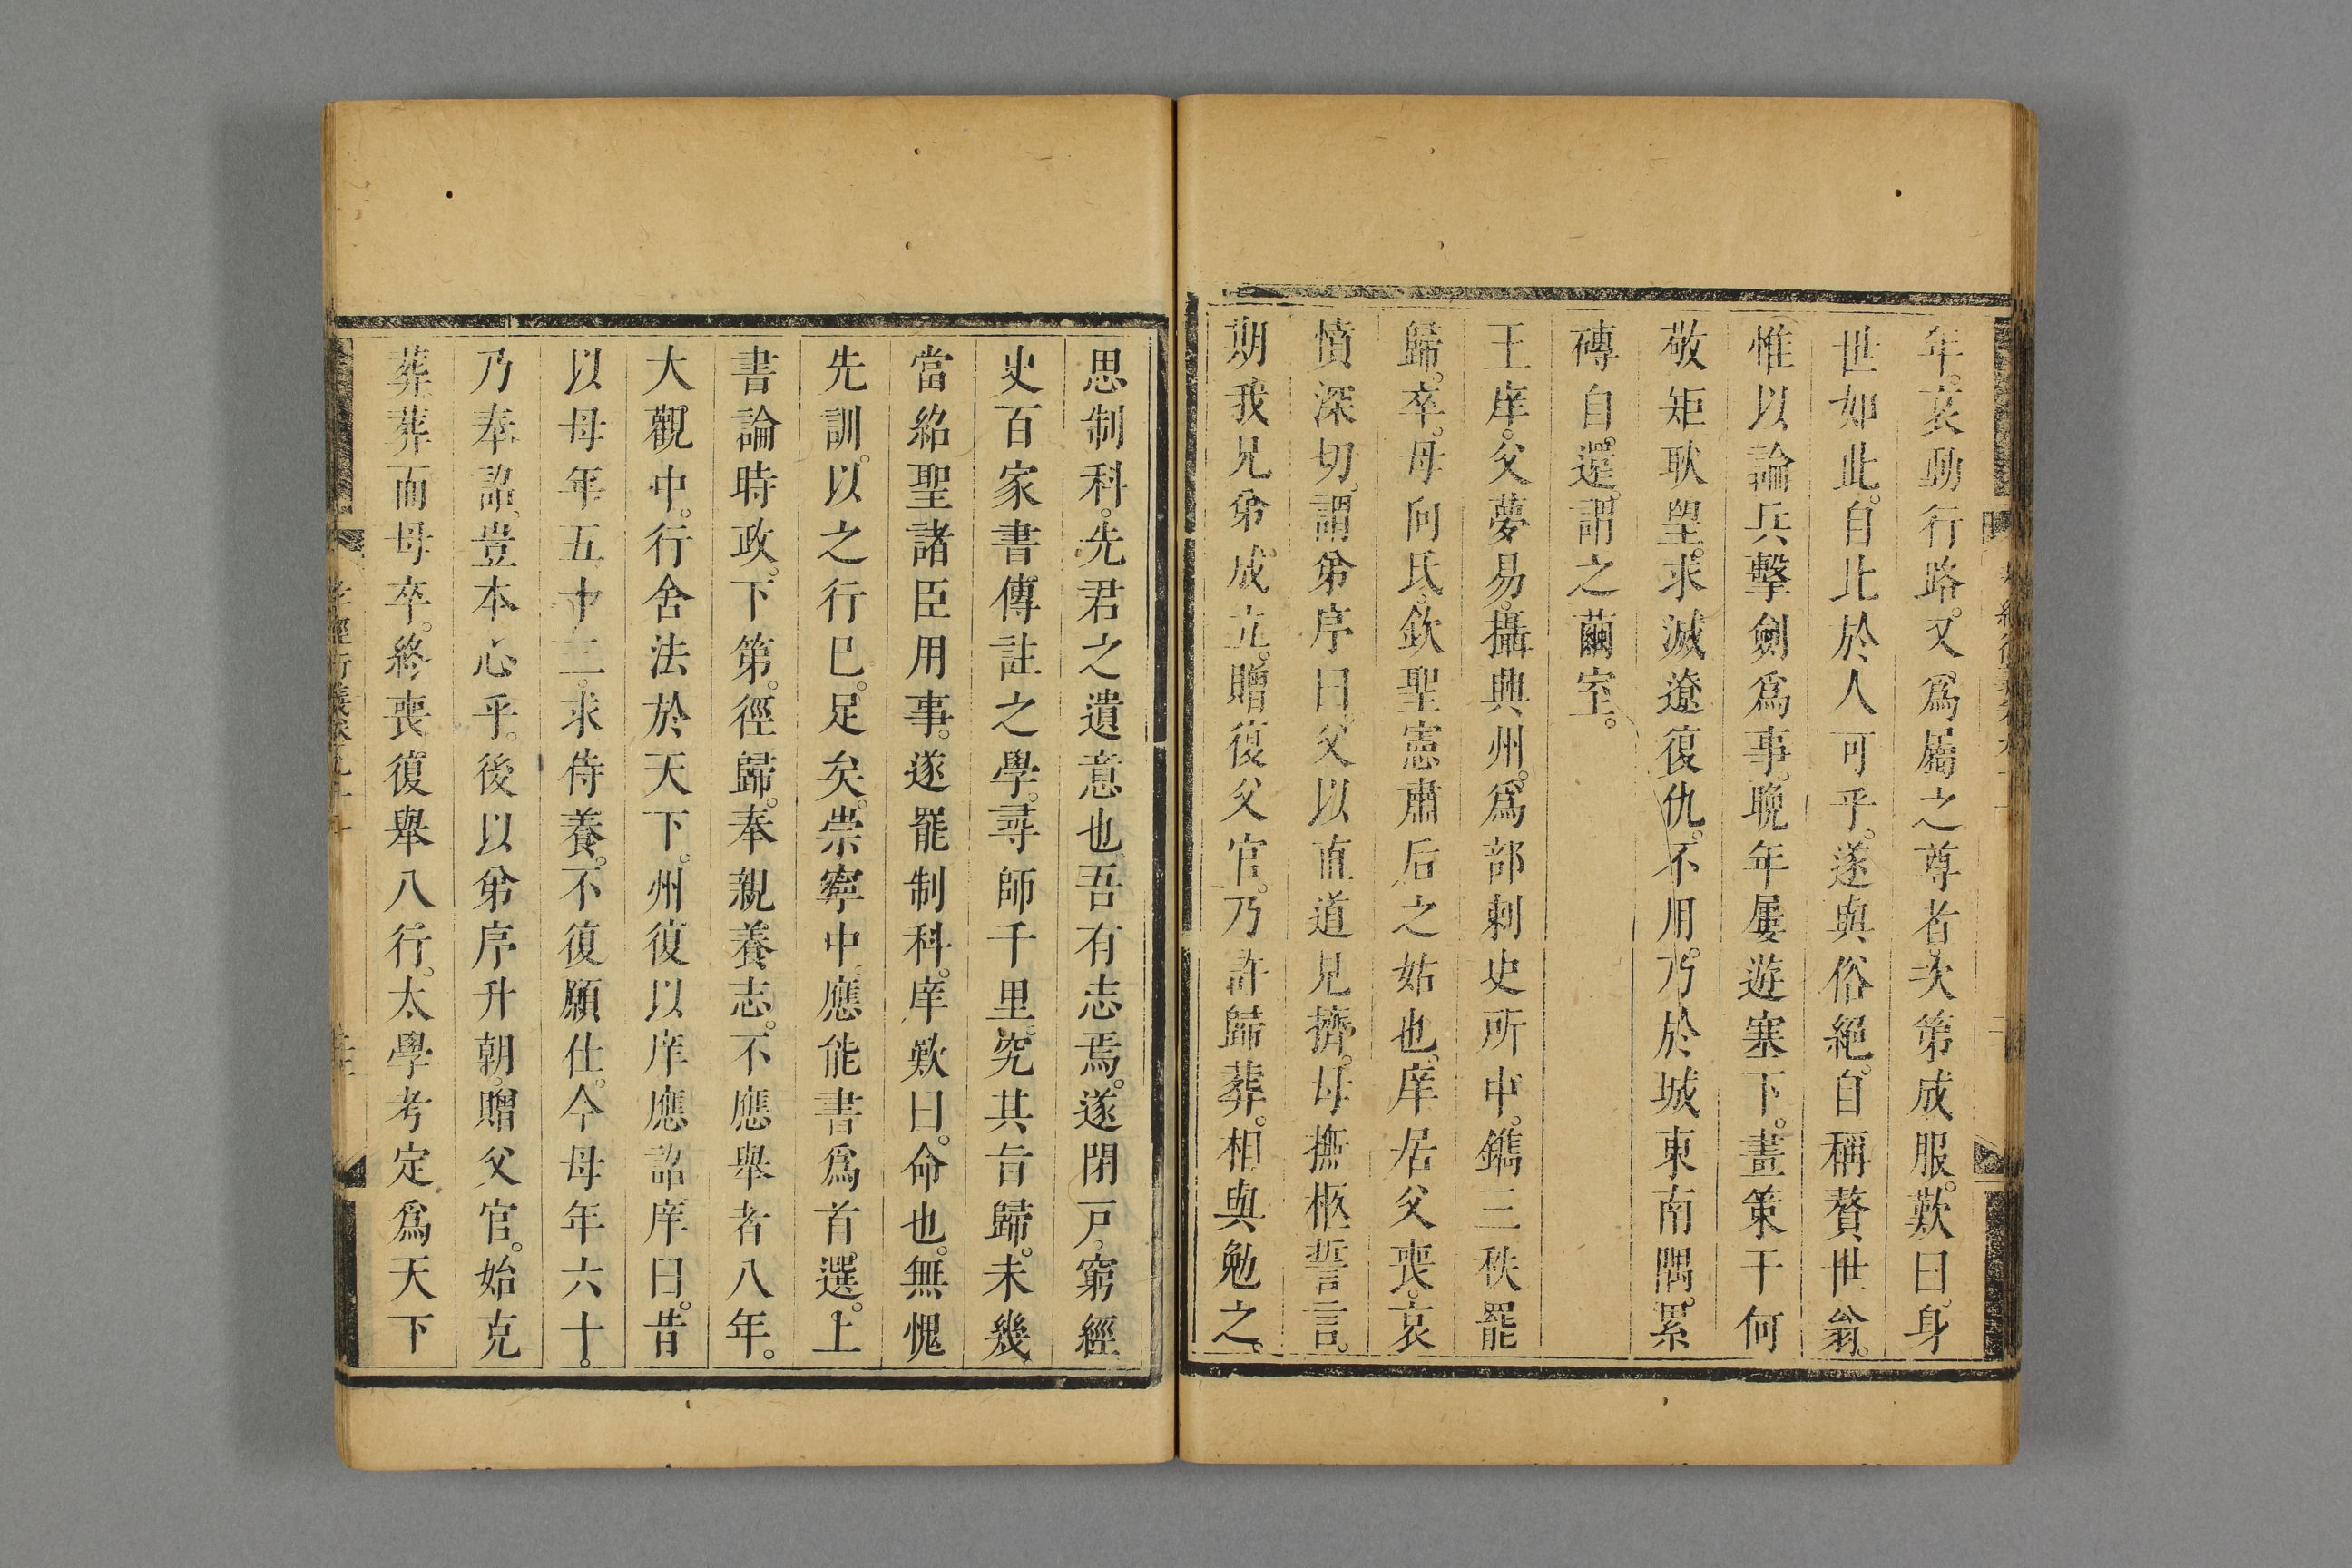 年。哀動行路。又爲屬之尊者。次第成服。歎曰。身
世如此。自比於人可乎。遂與俗絕。自稱贅世翁。
惟以論兵擊劍爲事。晚年屢遊塞下。畫策干何
敬矩耿望。求滅遼復仇。不用。乃於城東南隅。累
磚自還。謂之繭室。
王庠。父夢易。攝興州。爲部刺史所中。鐫三秩罷
歸。卒。母向氏。欽聖憲肅后之姑也。庠居父喪。哀
憤深切。謂弟序曰。父以直道見擠。母撫柩誓言。
期我兄弟成立。贈復父官。乃許歸葬。相與勉之。
思制科。先君之遺意也。吾有志焉。遂閉戸。窮經
史百家書傳註之學。尋師千里。究其旨歸。未幾
當紹聖諸臣用事。遂罷制科。庠歎曰。命也。無愧
先訓。以之行巳。足矣。崇寧中。應能書爲首選。上
書論時政。下第。徑歸。奉親養志。不應舉者八年。
大觀中。行舍法於天下。州復以庠應詔。庠曰。昔
以母年五十二。求侍養。不復願仕。今母年六十。
乃奉詔。豈本心乎。後以弟序升朝。贈父官。始克
葬。葬而母卒。終喪。復舉八行。太學考定爲天下